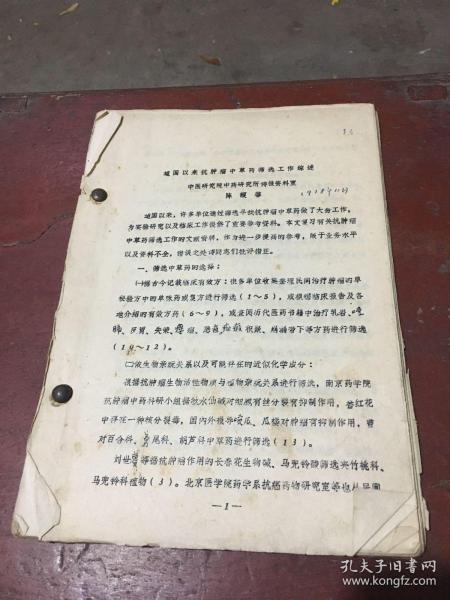 建国以来抗肿瘤中草药筛选工作综述
中医研究院中药研究所情报资料室
陈
建国以来，许多单位通过筛选寻找抗肿瘤中草药做了大量工作，
为实验研究以及临床工作提供了重要参考资料。本文复习有关抗肿瘤
中草药筛选工作的文献资料，作为进一步提高的参考，限于业务水平
以及资料不全，错误之处请同志们批评指正。
一、筛选中草药的选择：
㈠据古今记载临床有效方：很多单位收集整理民间治疗肿瘤的单
秘验方中的单味药或复方进行筛选（1～5），或根据临床报告及各
地介绍的有效方药（6～9），或查阅历代医药书籍中治疗乳岩、噎
膈、反胃、失荣、瘿瘤、恶疮 积聚、崩漏带下等方药进行筛选
（10～12）。
㈡依生物亲缘关系以及可能存在的近似化学成分：
根据抗肿瘤生物活性物质与植物亲缘关系进行筛选，南京药学院
抗肿瘤中草药科研小组据秋水仙碱对细胞有丝分裂有抑制作用，番红花
中存在一种核分裂毒，国内外报导喷瓜、瓜蒌对肿瘤有抑制作用，曾
对百合科、鸢尾科、葫芦科中草药进行筛选（13）。
刘世 等据抗肿瘤作用的长春花生物碱、马兜铃酸筛选夹竹桃科、
马兜铃科植物（3）。北京医学院药学系抗癌药物研究室等也从
—1—
孔夫子旧书网
www.kongfz.com